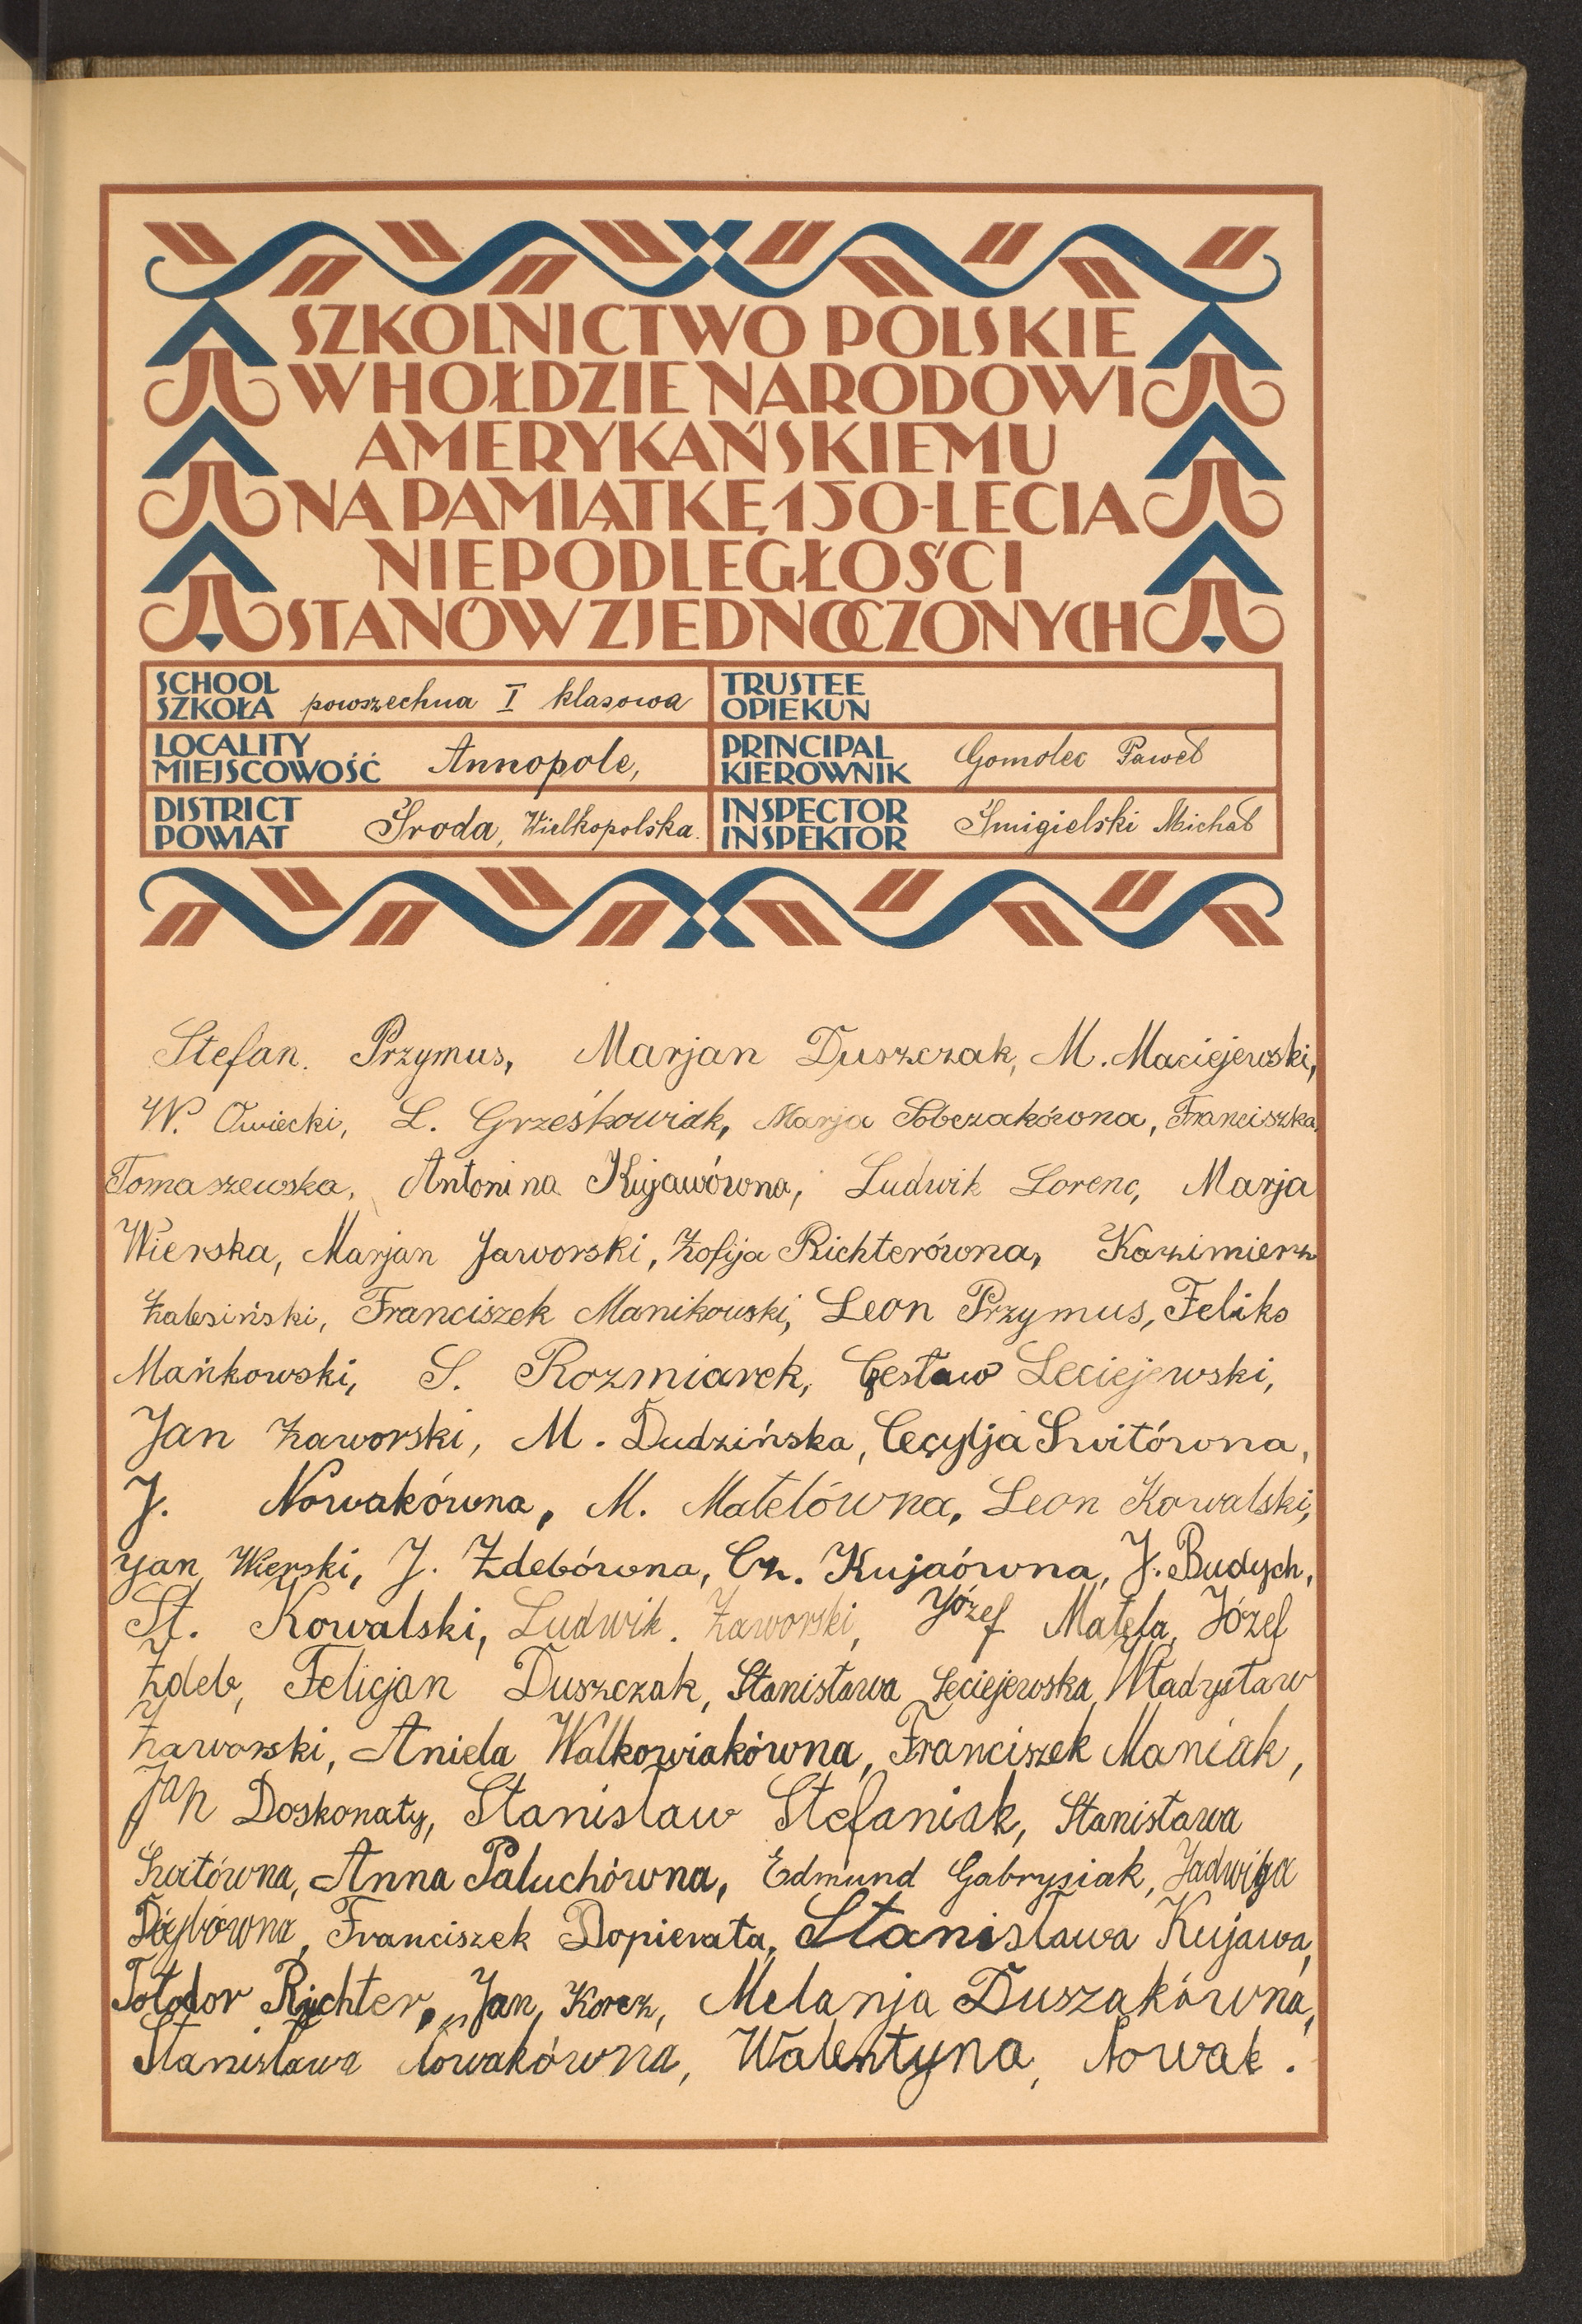 SZKOLNICTWO POLSKIE
W HOŁDZIE NARODOWI
AMERYKAŃSKIEMU
NA PAMIĄTKĘ 150-LECIA
NIEPODLEGŁOŚCI
STANÓW ZJEDNOCZONYCH
SCHOOL
SZKOŁA powszechna I klasowa
TRUSTEE
OPIEKUN
LOCALITY
MIEJSCOWOŚĆ Annopole,
PRINCIPAL
KIEROWNIK Gomolec Paweł
DISTRICT
POWIAT Środa, Wielkopolska.
INSPECTOR
INSPEKTOR Śmigielski Michał
Stefan. Przymus, Marjan Duszczak, M. Maciejewski,
W. Owiecki, L. Grześkowiak, Marja Sobczakówna, Franciszka
Tomaszewska, Antonina Kujawówna, Ludwik Lorenc, Marja
Wierska, Marjan Jaworski, Zofija Richterówna, Kazimierz
Zalesiński, Franciszek Manikowski, Leon Przymus, Feliks
Mańkowski, S. Rozmiarek, Czesław Leciejewski,
Jan Zaworski, M. Dudzińska, Cecylja Switówna,
J. Nowakówna, M. Matelówna, Leon Kowalski,
Jan Wierski, J. Zdebówna, Cz. Kujaówna, J. Budych,
St. Kowalski, Ludwik. Zaworski, Józef Matela, Józef
Zdeb, Felicjan Duszczak, Stanisława Leciejewska, Władysław
Zaworski, Aniela Walkowiakówna, Franciszek Maniak,
Jan Doskonały, Stanisław Stefaniak, Stanisława
Switówna, Anna Paluchówna, Edmund Gabrysiak, Jadwiga
Franciszek Dopierała, Stanisława Kujawa,
Richter, Jan, Korcz, Melanja Duszakówna,
Stanisława Nowakówna, Walentyna, Nowak.